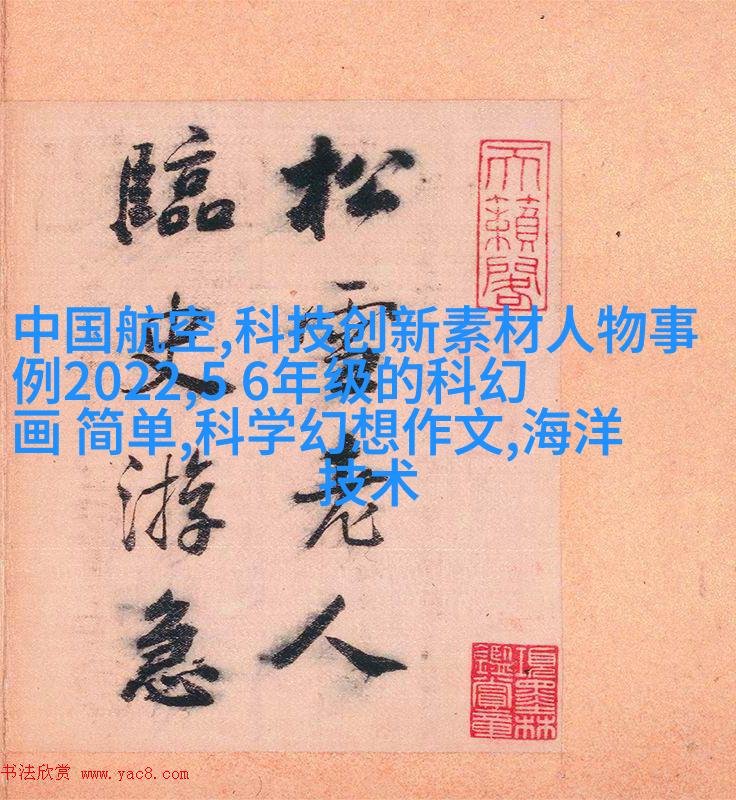 天籟閣
松雪老人
臨史游急
項墨林
鑑賞章
中国航空,科技创新素材人物事
例2022,5 6年级的科幻
画 简单,科学幻想作文,海洋
技术
书法欣赏 www.yac8.com